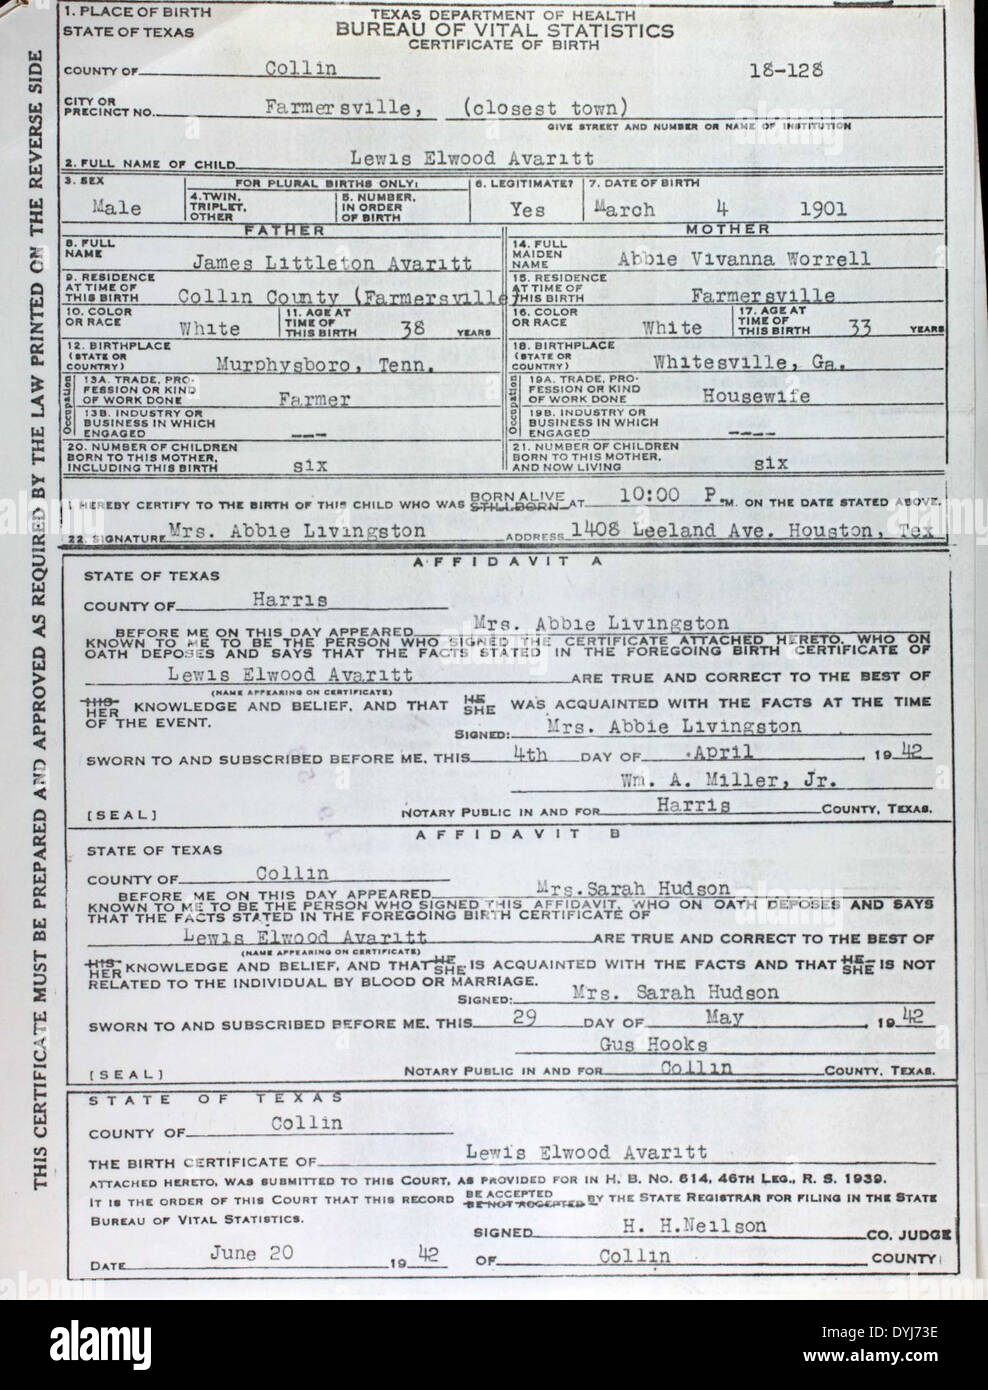 1. PLACE OF BIRTH
STATE OF TEXAS
TEXAS DEPARTMENT OF HEALTH
BUREAU OF VITAL STATISTICS
CERTIFICATE OF BIRTH
COUNTY OF Collin 18-128
CITY OR PRECINCT NO. Farmersville, (closest town)
GIVE STREET AND NUMBER OR NAME OF INSTITUTION
2. FULL NAME OF CHILD Lewis Elwood Avaritt
3. SEX Male
FOR PLURAL BIRTHS ONLY:
4. TWIN, TRIPLET, OTHER
5. NUMBER, IN ORDER OF BIRTH
6. LEGITIMATE? Yes
7. DATE OF BIRTH March 4 1901
FATHER
8. FULL NAME James Littleton Avaritt
9. RESIDENCE AT TIME OF THIS BIRTH Collin County (Farmersville)
10. COLOR OR RACE White
11. AGE AT TIME OF THIS BIRTH 38 YEARS
12. BIRTHPLACE (STATE OR COUNTRY) Murphysboro, Tenn.
Occupation
13A. TRADE, PROFESSION OR KIND OF WORK DONE Farmer
13B. INDUSTRY OR BUSINESS IN WHICH ENGAGED ---
20. NUMBER OF CHILDREN BORN TO THIS MOTHER, INCLUDING THIS BIRTH six
MOTHER
14. FULL MAIDEN NAME Abbie Vivanna Worrell
15. RESIDENCE AT TIME OF THIS BIRTH Farmersville
16. COLOR OR RACE White
17. AGE AT TIME OF THIS BIRTH 33 YEARS
18. BIRTHPLACE (STATE OR COUNTRY) Whitesville, Ga.
Occupation
19A. TRADE, PROFESSION OR KIND OF WORK DONE Housewife
19B. INDUSTRY OR BUSINESS IN WHICH ENGAGED ----
21. NUMBER OF CHILDREN BORN TO THIS MOTHER, AND NOW LIVING six
I HEREBY CERTIFY TO THE BIRTH OF THIS CHILD WHO WAS BORN ALIVE STILLBORN AT 10:00 P.M. ON THE DATE STATED ABOVE.
22. SIGNATURE Mrs. Abbie Livingston ADDRESS 1408 Leeland Ave. Houston, Tex
AFFIDAVIT A
STATE OF TEXAS
COUNTY OF Harris
BEFORE ME ON THIS DAY APPEARED Mrs. Abbie Livingston
KNOWN TO ME TO BE THE PERSON WHO SIGNED THE CERTIFICATE ATTACHED HERETO, WHO ON
OATH DEPOSES AND SAYS THAT THE FACTS STATED IN THE FOREGOING BIRTH CERTIFICATE OF
Lewis Elwood Avaritt ARE TRUE AND CORRECT TO THE BEST OF
(NAME APPEARING ON CERTIFICATE)
HIS HER KNOWLEDGE AND BELIEF, AND THAT HE SHE WAS ACQUAINTED WITH THE FACTS AT THE TIME
OF THE EVENT.
SIGNED: Mrs. Abbie Livingston
SWORN TO AND SUBSCRIBED BEFORE ME, THIS 4th DAY OF April, 1942
Wm. A. Miller, Jr.
[SEAL] NOTARY PUBLIC IN AND FOR Harris COUNTY, TEXAS.
AFFIDAVIT B
STATE OF TEXAS
COUNTY OF Collin
BEFORE ME ON THIS DAY APPEARED Mrs. Sarah Hudson
KNOWN TO ME TO BE THE PERSON WHO SIGNED THIS AFFIDAVIT, WHO ON OATH DEPOSES AND SAYS
THAT THE FACTS STATED IN THE FOREGOING BIRTH CERTIFICATE OF
Lewis Elwood Avaritt ARE TRUE AND CORRECT TO THE BEST OF
(NAME APPEARING ON CERTIFICATE)
HIS HER KNOWLEDGE AND BELIEF, AND THAT HE SHE IS ACQUAINTED WITH THE FACTS AND THAT HE SHE IS NOT
RELATED TO THE INDIVIDUAL BY BLOOD OR MARRIAGE.
SIGNED: Mrs. Sarah Hudson
SWORN TO AND SUBSCRIBED BEFORE ME, THIS 29 DAY OF May, 1942
Gus Hooks
[SEAL] NOTARY PUBLIC IN AND FOR Collin COUNTY, TEXAS.
STATE OF TEXAS
COUNTY OF Collin
THE BIRTH CERTIFICATE OF Lewis Elwood Avaritt
ATTACHED HERETO, WAS SUBMITTED TO THIS COURT, AS PROVIDED FOR IN H. B. NO. 614, 46TH LEG., R. S. 1939.
IT IS THE ORDER OF THIS COURT THAT THIS RECORD BE ACCEPTED BE NOT ACCEPTED BY THE STATE REGISTRAR FOR FILING IN THE STATE
BUREAU OF VITAL STATISTICS.
SIGNED H. H.Neilson CO. JUDGE
DATE June 20 1942 OF Collin COUNTY
THIS CERTIFICATE MUST BE PREPARED AND APPROVED AS REQUIRED BY THE LAW PRINTED ON THE REVERSE SIDE
alamy
Image ID: DYJ73E
www.alamy.com